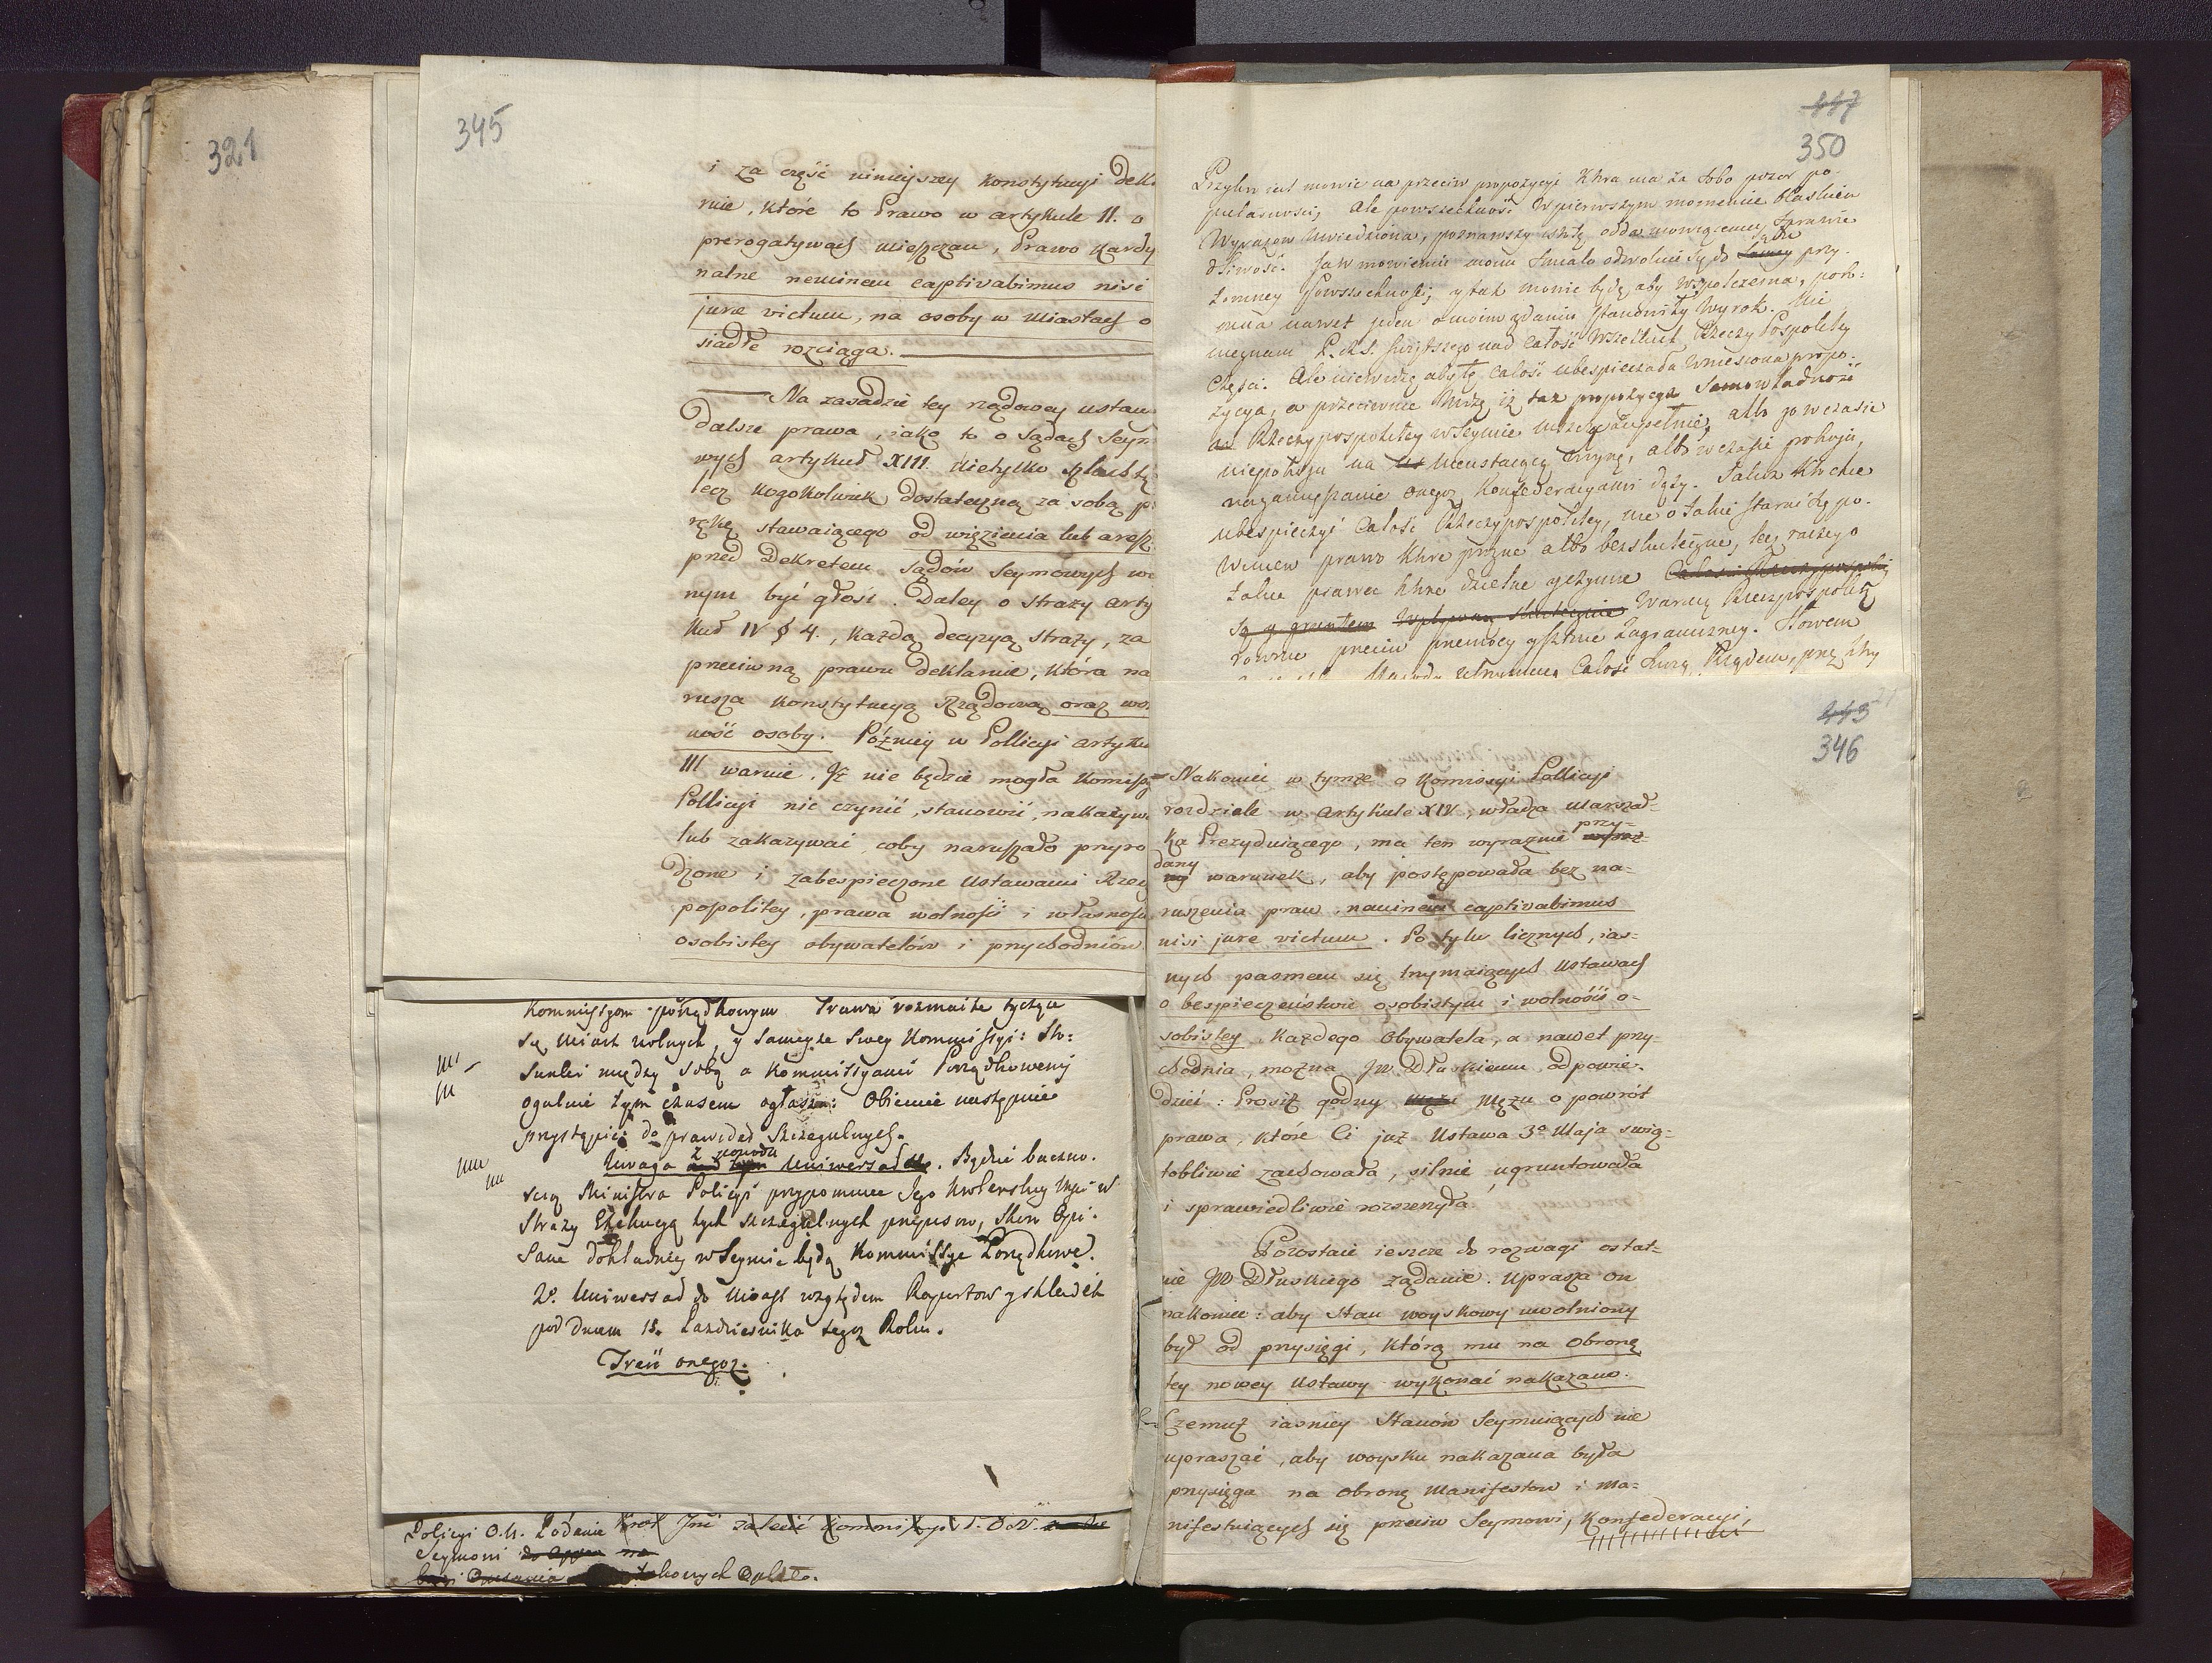 321
345
i za część ninieyszey Konstytucyi dekl
ruie, które to Prawo w artykule II. o
prerogatywach mieszczan, Prawo Kardy
nalne neminem captivabimus nisi
jure victum, na osoby w Miastach o
siadłe rozciąga.
Na zasadzie tey rządowey ustaw
dalsze prawa, iako to o Sądach Seym
wych artykuł XIII. nietylko szlachtę
lecz kogokolwiek dostateczną za sobą p
rękę stawaiącego od więzienia lub aresz
przed Dekretem Sądów Seymowych wo
nym być głosi. Daley o straży arty
kuł IV § 4., każdą decyzyą straży, za
przeciwną prawu deklaruie, która na
rusza Konstytucyą Rządową oraz wol
ność osoby. Późniey w Pollicyi artyku
III waruie, Iż nie będzie mogła Komissya
Pollicyi nic czynić, stanowić, nakazywa
lub zakazywać, coby naruszało przyro
dzone i zabespieczone Ustawami Rzeczy
pospolitey, prawa wolności i własności
osobistey obywatelów i przychodniów
Kommissyom porządkowym Prawa rozmaite tyczące
się Miast wolnych, y samey że swey Kommissyi: Sto:
sunki między sobą a Kommissyami Porządkowemi
ogulnie tym czasem ogłasza: Obiecuie następnie
przystąpić do prawideł szczegulnych.
z powodu
Uwaga nad tym Uniwersałem. Będzie baczno.
scią Ministra Policyi przypomniec Jego Krolewskiey Mci w
Straży Exekucyą tych szczegulnych przepisow, skoro Opi.
sane dokładniey w Seymie będą Kommissye Porządkowe.
2°. Uniwersał do Miast względem Raportow y składek
pod dniem 18. Pazdziernika tegoż Roku.
Treść onegoż.
Policyi O.N. Podanie
Seymowi
takowych Opłat.
447
350
Przykro iest mowić na przeciw propozycyi ktora ma za sobą pozor po-
pularności, Ale powszechność w pierwszym momencie blaskiem
Wyrazow uwiedziona, poznawszy istotę odda mowiącemu sprawie
dliwość. Ja w mowieniu moim śmiało odwołuię się do sądu przy-
tomney Powszechności, y tak mowić będę, aby współczesna, poto:
mna nawet ieden o moim zdaniu stanowiły Wyrok. Nie
częsci. Ale nie widzę aby tę całość ubespieczała wniesiona propo-
zycya, a przeciwnie widzę iż taż propozycya Samowładność
Rzeczypospolitey w Seymie niszczy zupełnie, albo go w czasie
niepokoju na nieustaiącą czynę, albo w czasie pokoju,
na zamieszanie onegoż Konfederacyami dąży. Jakoż kto chce
ubespieczyć Całość Rzeczypospolitey, nie o takie starać się po-
winien prawo ktore prożne albo bezskuteczne, lecz raczey o
takie prawa ktore dzielne y czynne Całości Rzeczypospolitey
są y gruntem Wpływaią skutecznie Waruią Rzeczpospolitą
rownie przeciw przemocy y sztuce Zagraniczney. Słowem
443
346
Nakoniec w tymże o Komissyi Pollicyi
rozdziale w artykule XIV., władza marszał-
przy-
ka Prezyduiącego, ma ten wyraznie wyraż-
dany
ny warunek, aby postępowała bez na-
ruszenia praw, neminem captivabimus
nisi jure victum. Po tylu licznych, ias-
nych pasmem się trzymaiących Ustawach
o bespieczeństwie osobistym i wolności o-
sobistey każdego Obywatela, a nawet przy-
chodnia, można JW Dłuskiemu odpowie-
dzieć: Prosisz godny Mężu o powrót
prawa, które Ci już Ustawa 3° Maja swią-
tobliwie zachowała, silnie ugruntowała
i sprawiedliwie rozszerzyła
Pozostaie ieszcze do rozwagi ostat-
nie JW Dłuskiego żądanie. Uprasza on
nakoniec: aby stan woyskowy uwolniony
był od przysięgi, którą mu na obronę
tey nowey Ustawy wykonać nakazano.
Czemuż iasniey Stanów Seymuiących nie
upraszać, aby woysku nakazana była
przysięga na obronę Manifestow i ma-
nifestuiących się przeciw Seymowi, Konfederacyi,